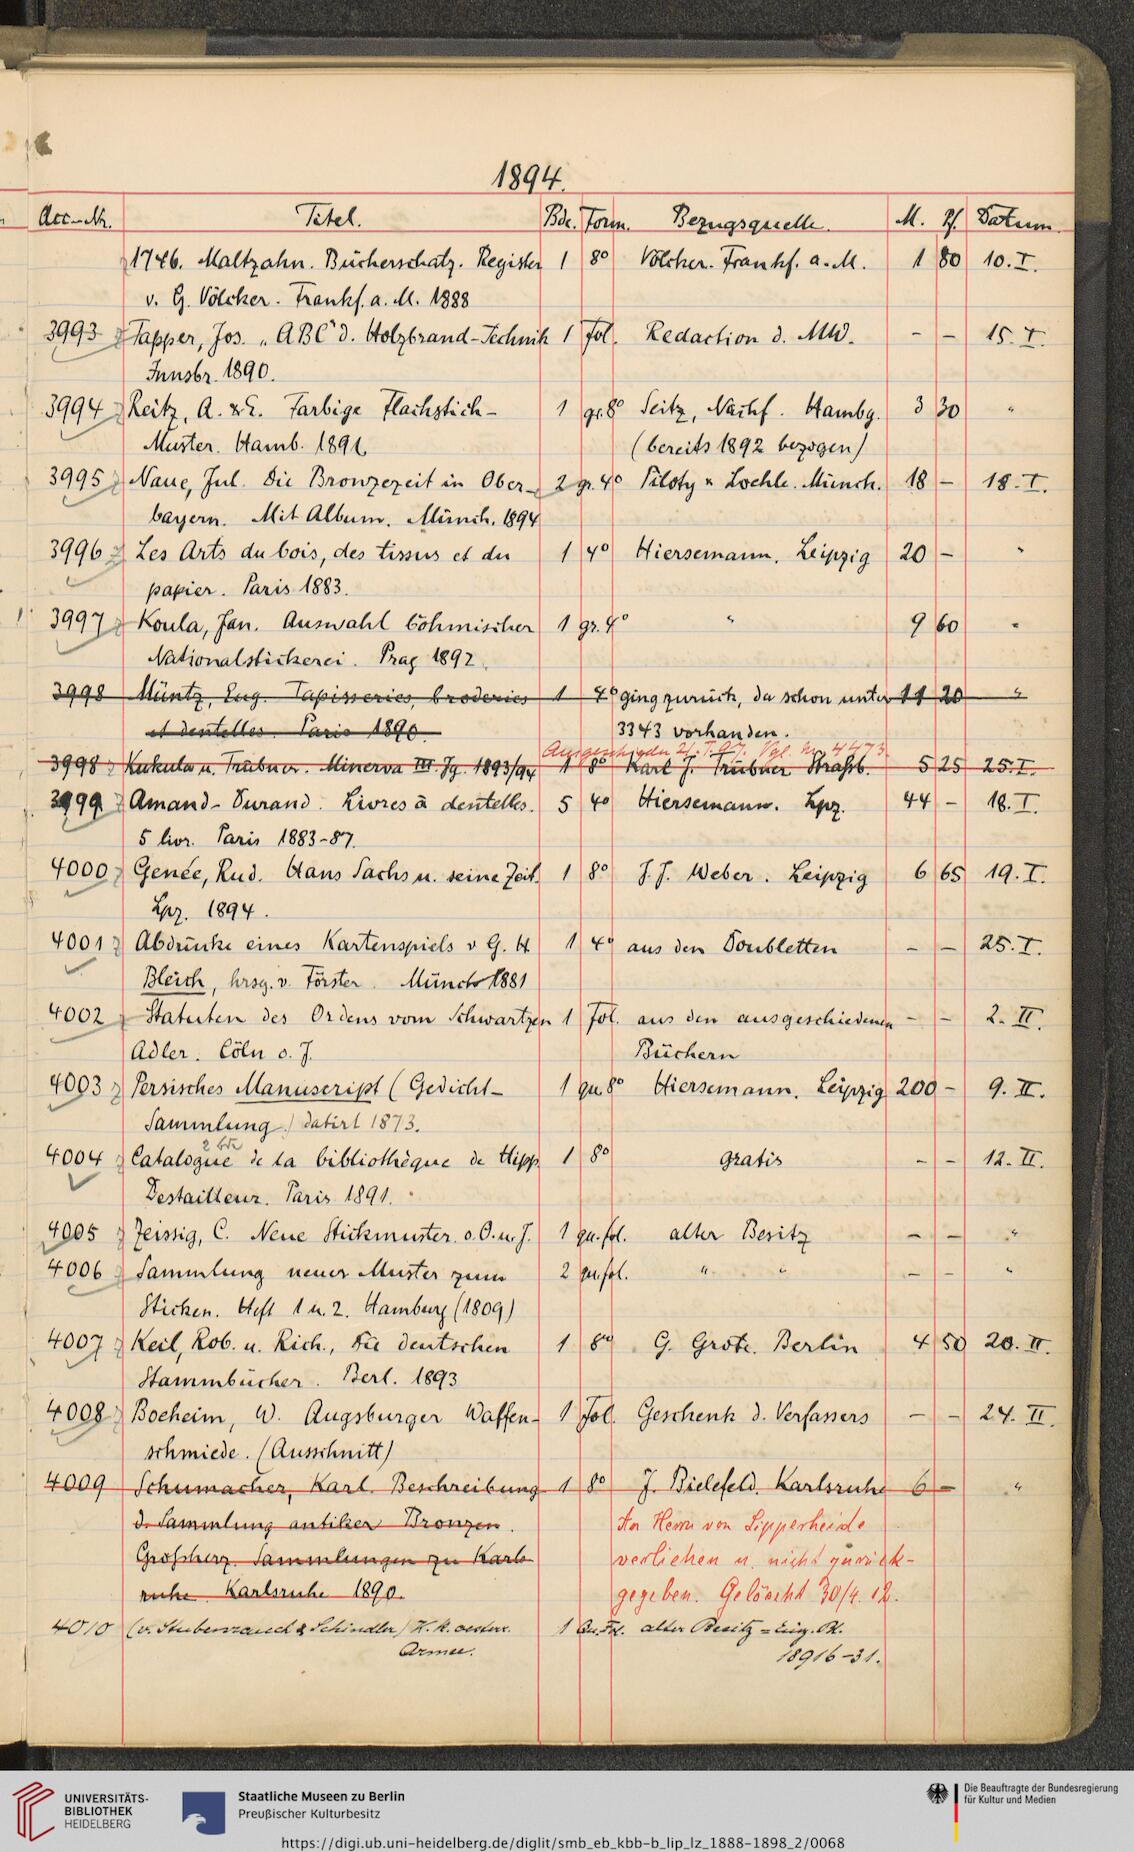 1894.
Acc.-Nr. Titel. Bde. Form. Bezugsquelle. M. Pf. Datum.
1746. Maltzahn. Bücherschatz. Register 1 8° Völcker. Frankf. a. M. 1 80 10. I.
v. G. Völcker. Frankf. a. M. 1888
3993 Tapper, Jos. „ABC" d. Holzbrand-Technik 1 Fol. Redaction d. MW. - - 15. I.
Innsbr. 1890.
3994 Reitz, A. & E. Farbige Flachstich- 1 gr. 8° Seitz, Nachf. Hambg. 3 30 "
Muster. Hamb. 1891. (bereits 1892 bezogen)
3995 Naue, Jul. Die Bronzezeit in Ober- 2 gr. 4° Piloty & Loehle. Münch. 18 - 18. I.
bayern. Mit Album. Münch. 1894
3996 Les Arts du bois, des tissus et du 1 4° Hiersemann. Leipzig 20 - "
papier. Paris 1883.
3997 Koula, Jan. Auswahl böhmischer 1 gr. 4° " 9 60 "
Nationalstickerei. Prag 1892.
3998 Müntz, Eug. Tapisseries, broderies 1 4° ging zurück, da schon unter 11 20 "
et dentelles. Paris 1890. 3343 vorhanden.
Ausgeschieden 21. I. 97. Vgl. Nr. 4473
3998 Kukula u. Trübner. Minerva III. Jg. 1893/94 1 8° Karl J. Trübner Straßb. 5 25 25. I.
3999 Amand-Durand. Livres à dentelles. 5 4° Hiersemann. Lpz. 44 - 18. I.
5 livr. Paris 1883-87.
4000 Genée, Rud. Hans Sachs u. seine Zeit. 1 8° J. J. Weber. Leipzig 6 65 19. I.
Lpz. 1894.
4001 Abdrücke eines Kartenspiels v G. H 1 4° aus den Doubletten - - 25. I.
Bleich, hrsg. v. Förster. Münch 1881
4002 Statuten des Ordens vom Schwartzen 1 Fol. aus den ausgeschiedenen - - 2. II.
Adler. Cöln o. J. Büchern
4003 Persisches Manuscript (Gedicht- 1 qu. 8° Hiersemann. Leipzig 200 - 9. II.
Sammlung) datirt 1873.
2 bde
4004 Catalogue de la bibliothèque de Hipp. 1 8° gratis - - 12. II.
Destailleur. Paris 1891.
4005 Zeissig, C. Neue Stickmuster. o. O. u. J. 1 qu. fol. alter Besitz - - "
4006 Sammlung neuer Muster zum 2 qu. fol. " " - - "
Sticken. Heft 1 u. 2. Hamburg (1809)
4007 Keil, Rob. u. Rich., Die deutschen 1 8° G. Grote. Berlin 4 50 20. II.
Stammbücher. Berl. 1893
4008 Boeheim, W. Augsburger Waffen- 1 Fol. Geschenk d. Verfassers - - 24. II.
schmiede. (Ausschnitt)
4009 Schumacher, Karl. Beschreibung 1 8° J. Bielefeld. Karlsruhe 6 - "
d. Sammlung antiker Bronzen. An Herrn von Lipperheide
Großherz. Sammlungen zu Karls- verliehen u. nicht zurück-
ruhe. Karlsruhe 1890. gegeben. Gelöscht 30/4. 12.
4010 (v. Stubenrauch & Schindler) K. K. oesterr. 1 Qu. Fol. alter Besitz =
Armee. 18916-31.
UNIVERSITÄTS-
BIBLIOTHEK
HEIDELBERG
Staatliche Museen zu Berlin
Preußischer Kulturbesitz
Die Beauftragte der Bundesregierung
für Kultur und Medien
https://digi.ub.uni-heidelberg.de/diglit/smb_eb_kbb-b_lip_lz_1888-1898_2/0068